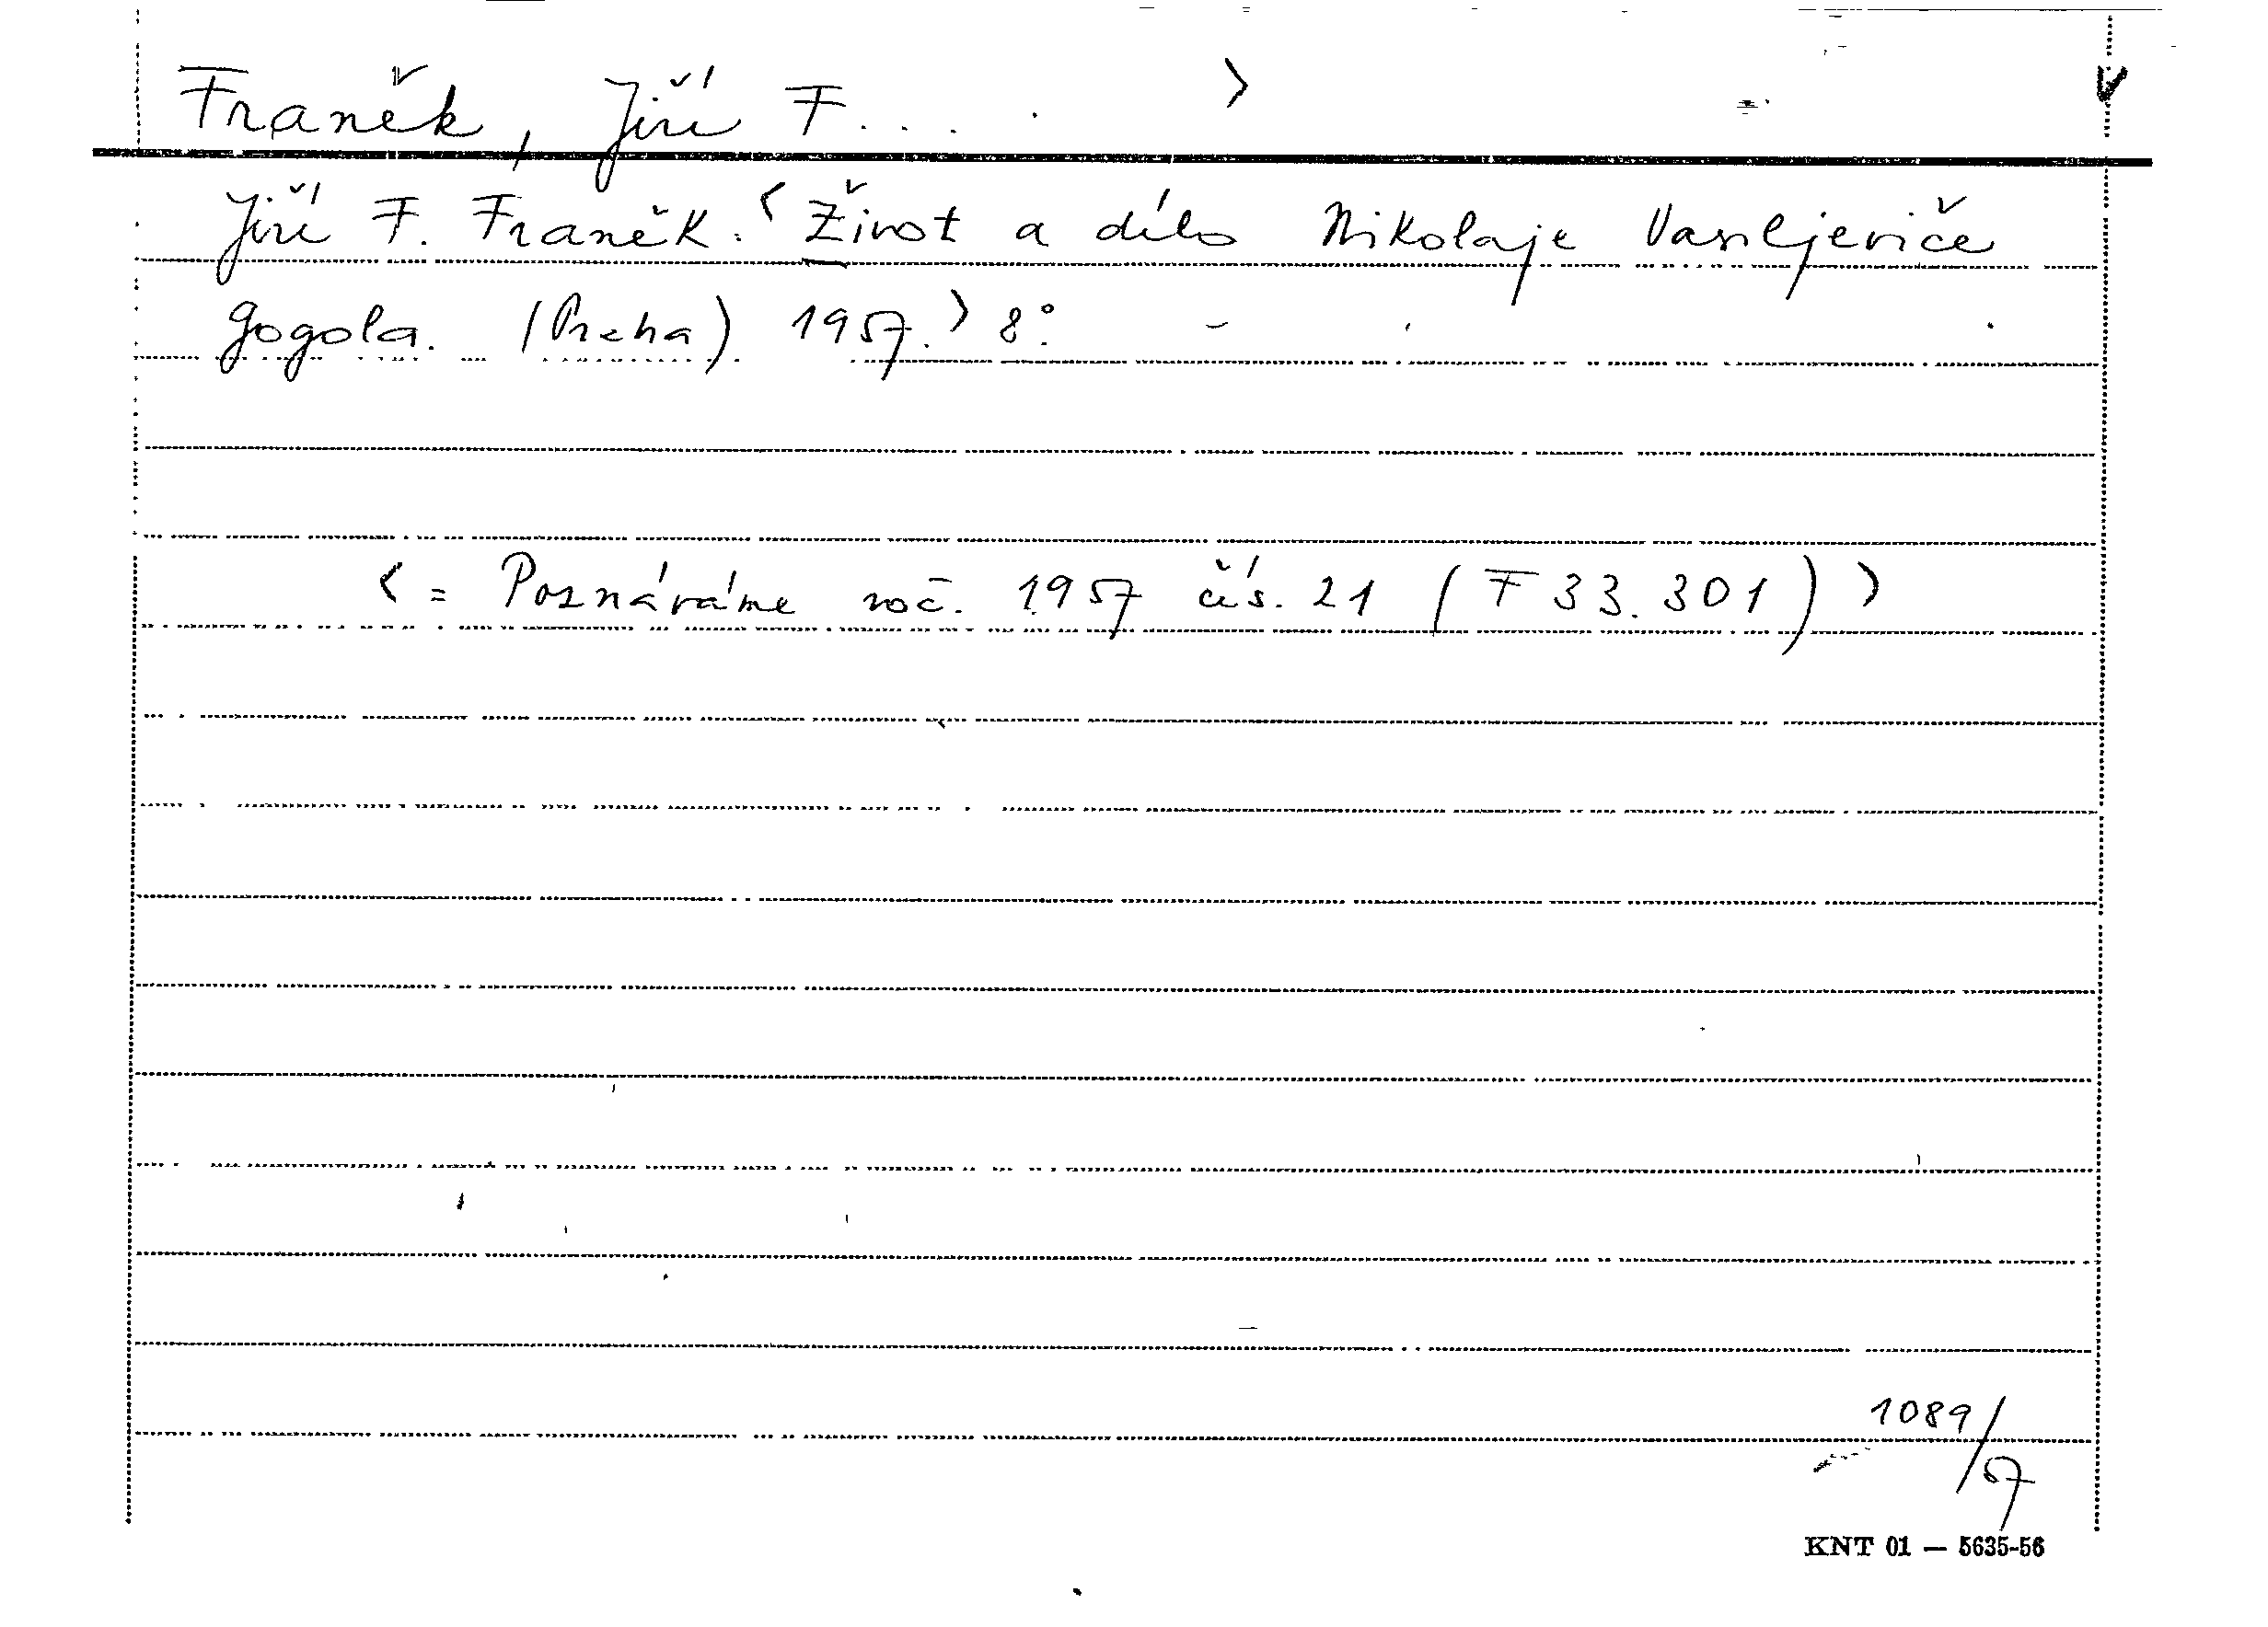 Franěk, Jiří F.... . >
Jiří F. Franěk: < Život a dílo Nikolaje Vasiljeviče
Gogola. (Praha) 1957.> 8°.
< = Poznáváme roč. 1957 čís. 21 (F 33.301) >
1089/57
KNT 01 — 5635-56